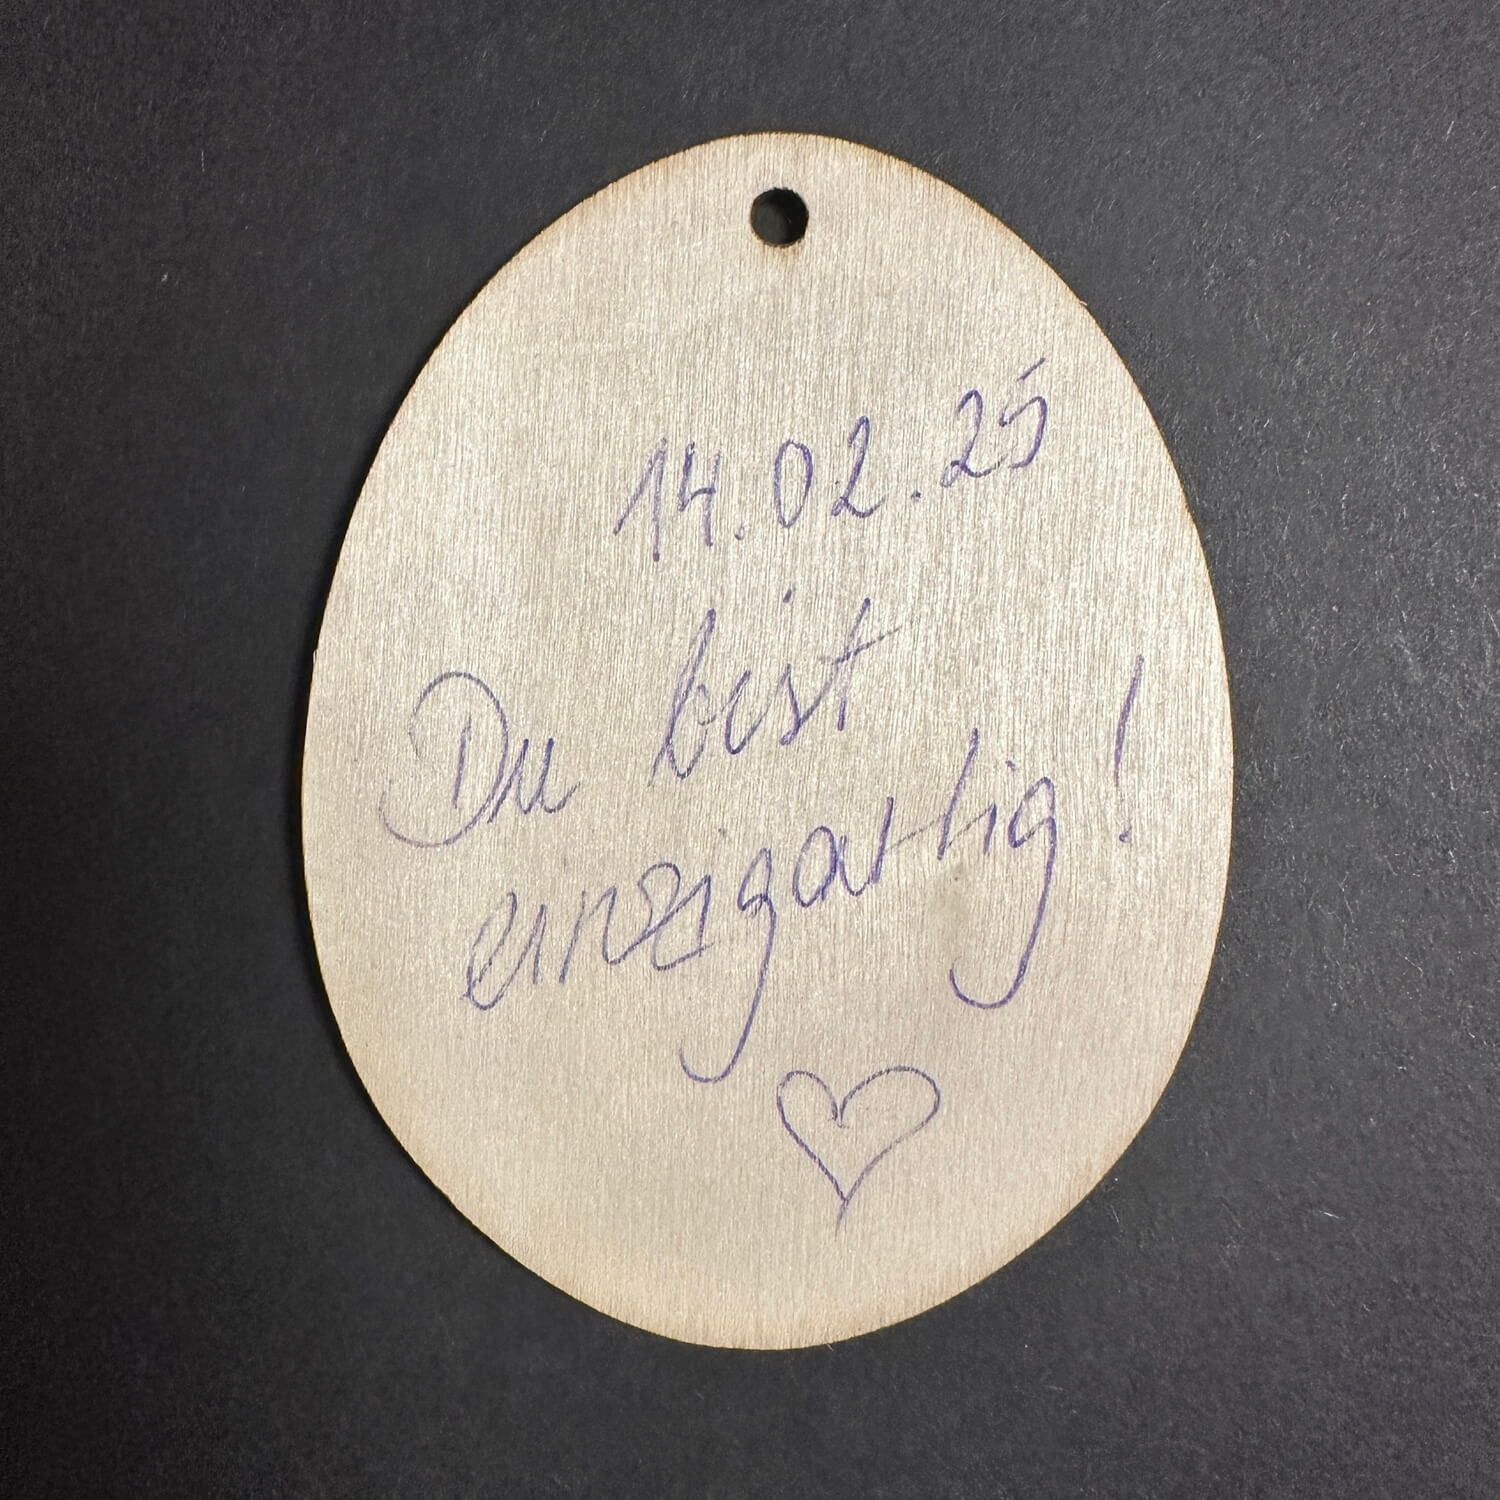 14.02.25
Du bist
einzigartig!